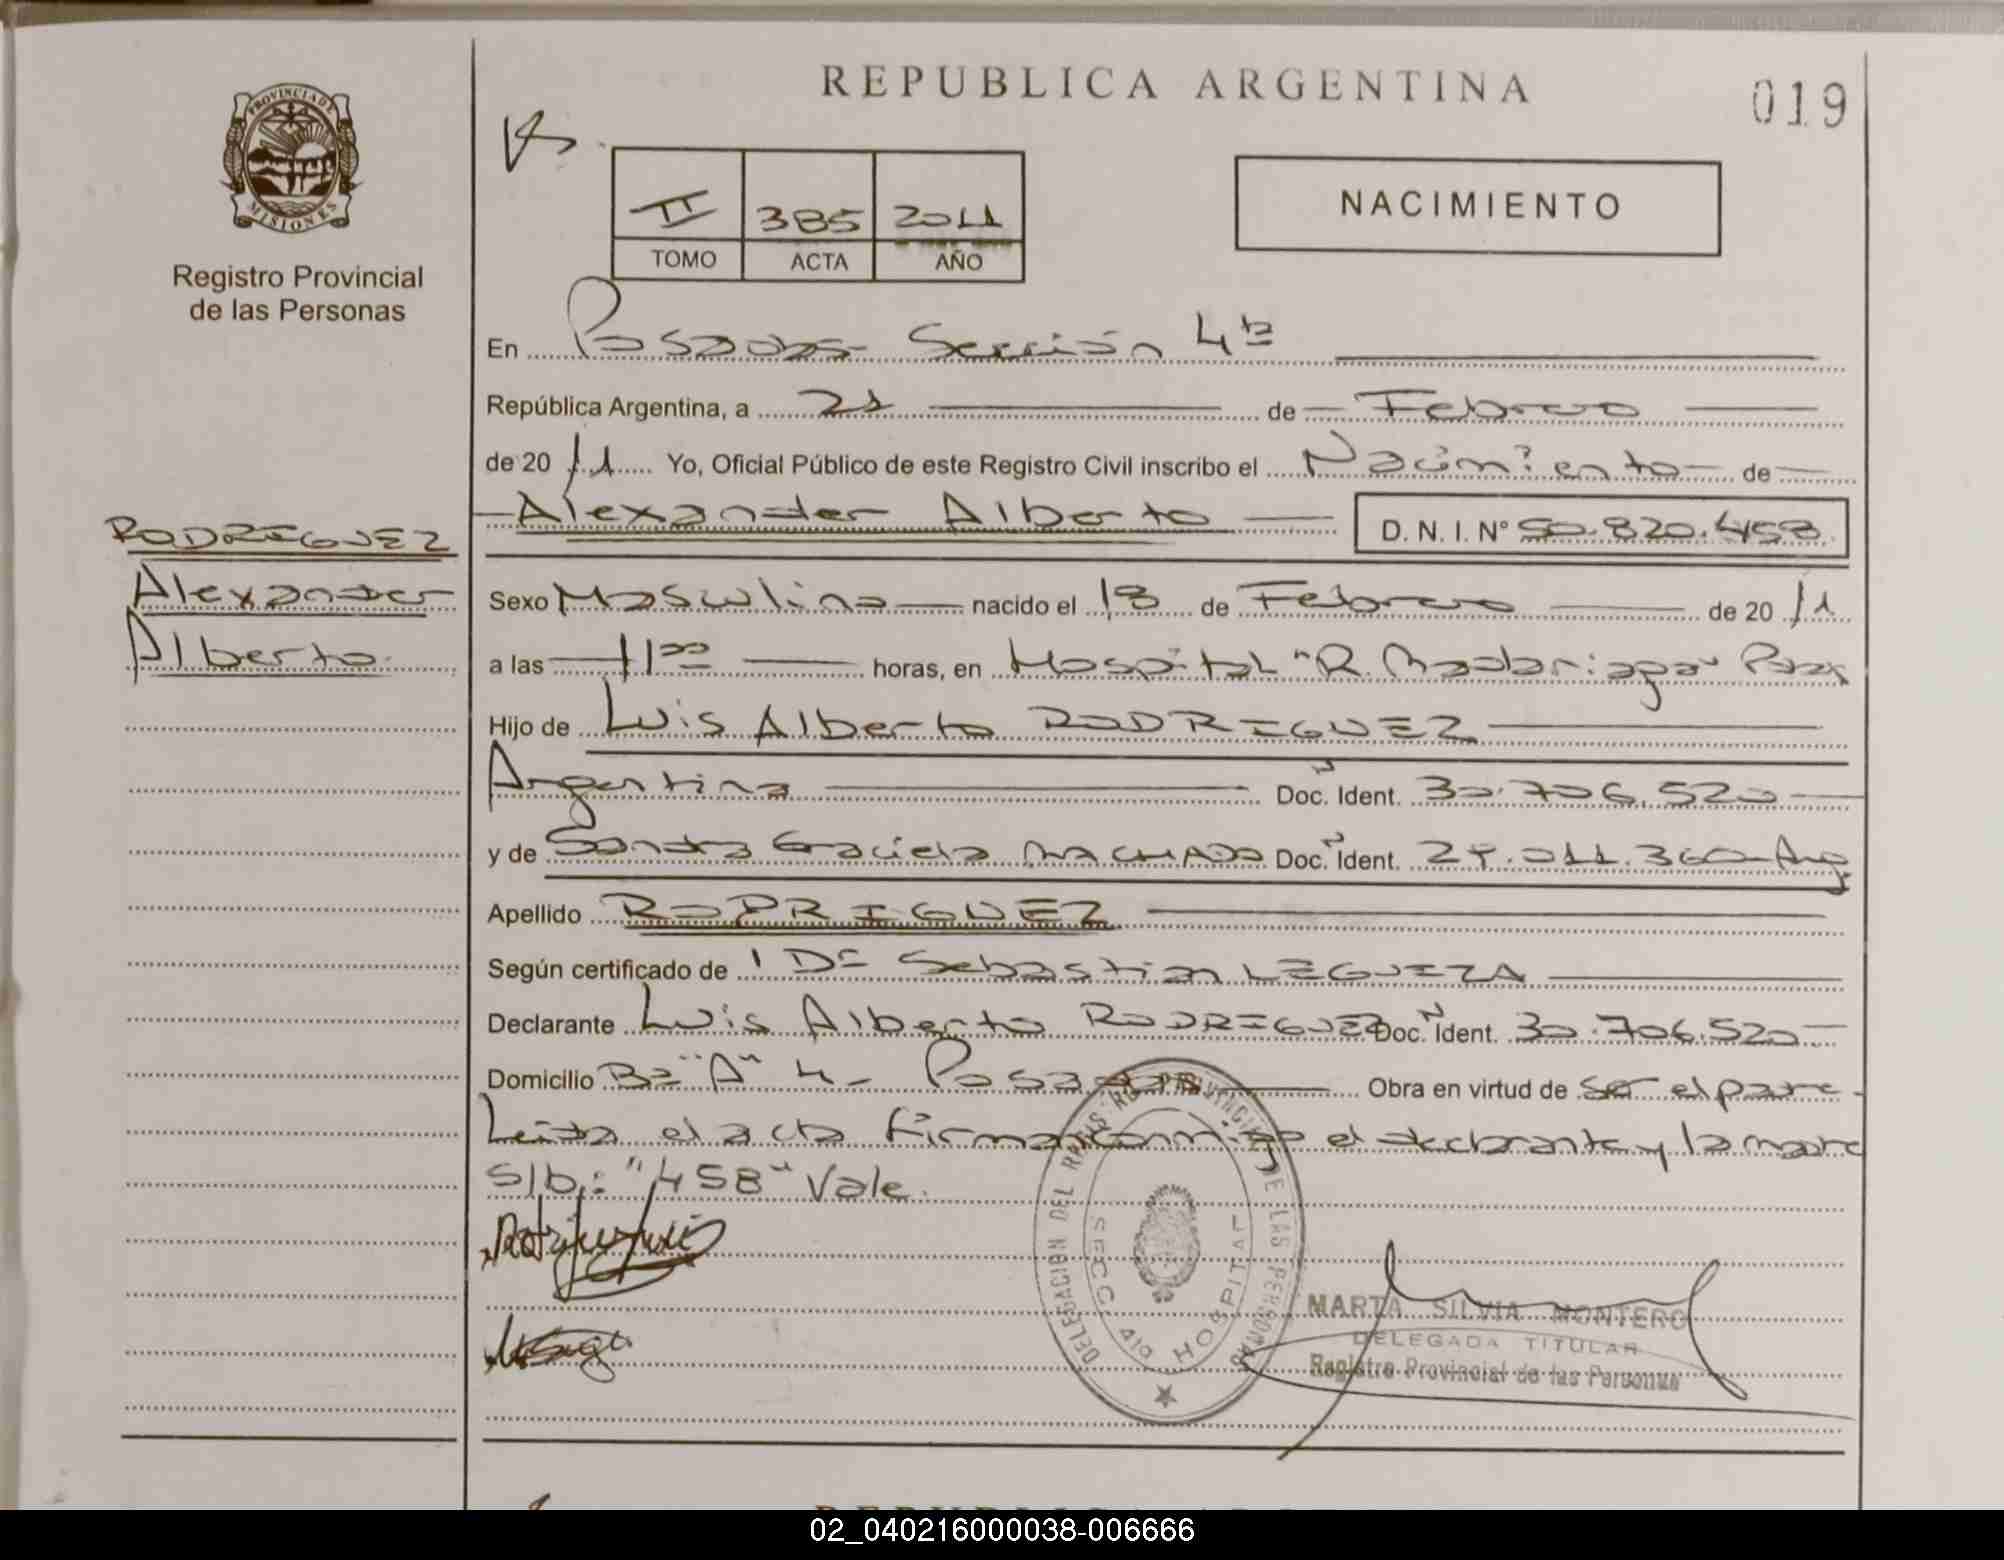 REPUBLICA ARGENTINA
019
PROVINCIA DE
MISIONES
Registro Provincial
de las Personas
II 385 2011
TOMO ACTA AÑO
NACIMIENTO
En Posadas Sección 4ta
República Argentina, a 21 de Febrero
de 2011 Yo, Oficial Público de este Registro Civil inscribo el Nacimiento de
Alexander Alberto D. N. I. Nº 50.820.458
RODRIGUEZ
Alexander
Alberto
Sexo Masculino nacido el 18 de Febrero de 2011
a las 11 00 horas, en Hospital "R. Madariaga"
Hijo de Luis Alberto RODRIGUEZ
Argentina Doc. Ident. 30.706.520
y de Sandra Graciela MACHADO Doc. Ident. .011.360 Arg
Apellido RODRIGUEZ
Según certificado de Sebastian LEGUIZA
Declarante Luis Alberto RODRIGUEZ Doc. Ident. 30.706.520
Domicilio Bº "A" 4 - Posadas Obra en virtud de ser el padre
Leida el acta firman conmigo el declarante y la madre
S/b: "458" Vale.
DELEGACION DEL REGISTRO PROVINCIAL DE LAS PERSONAS
SECC. 4ta HOSPITAL
MARTA SILVIA MONTERO
DELEGADA TITULAR
Registro Provincial de las Personas
02_040216000038-006666